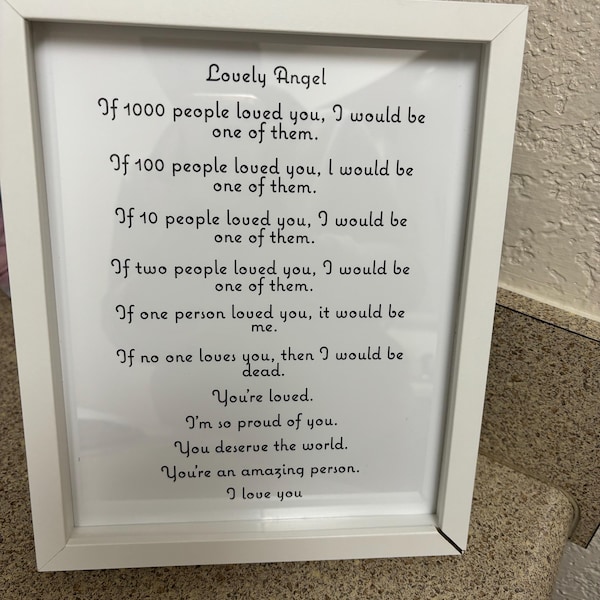 Lovely Angel
If 1000 people loved you, I would be
one of them.
If 100 people loved you, l would be
one of them.
If 10 people loved you, I would be
one of them.
If two people loved you, I would be
one of them.
If one person loved you, it would be
me.
If no one loves you, then I would be
dead.
You're loved.
I'm so proud of you.
You deserve the world.
You're an amazing person.
I love you